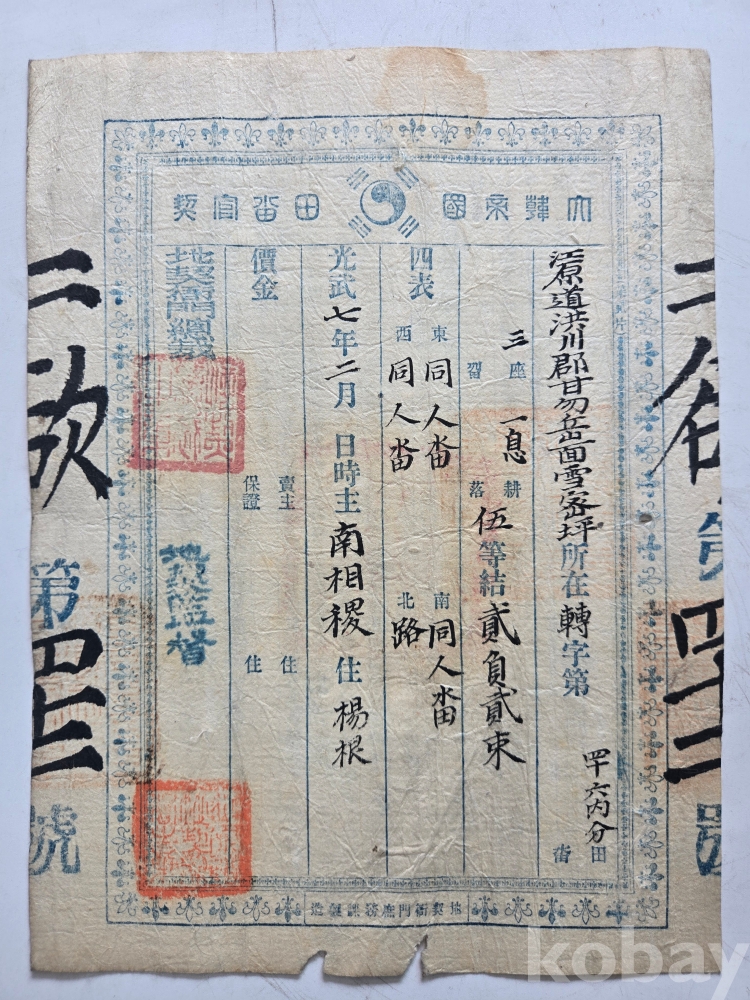 大韓帝國田畓官契
江原道洪川郡甘勿岳面雪密坪所在轉字第
罕六內分
田
畓
三座
習
一息
耕
落
伍等結貳負貳束
四表
東同人畓
西同人畓
南同人畓
北路
光武七年二月 日時主南相稷住楊根
價金
賣主 住
保證 住
地契衙門總裁
地契監督
地契衙門庶務課製造
第
號
二欲
第
號
kobay